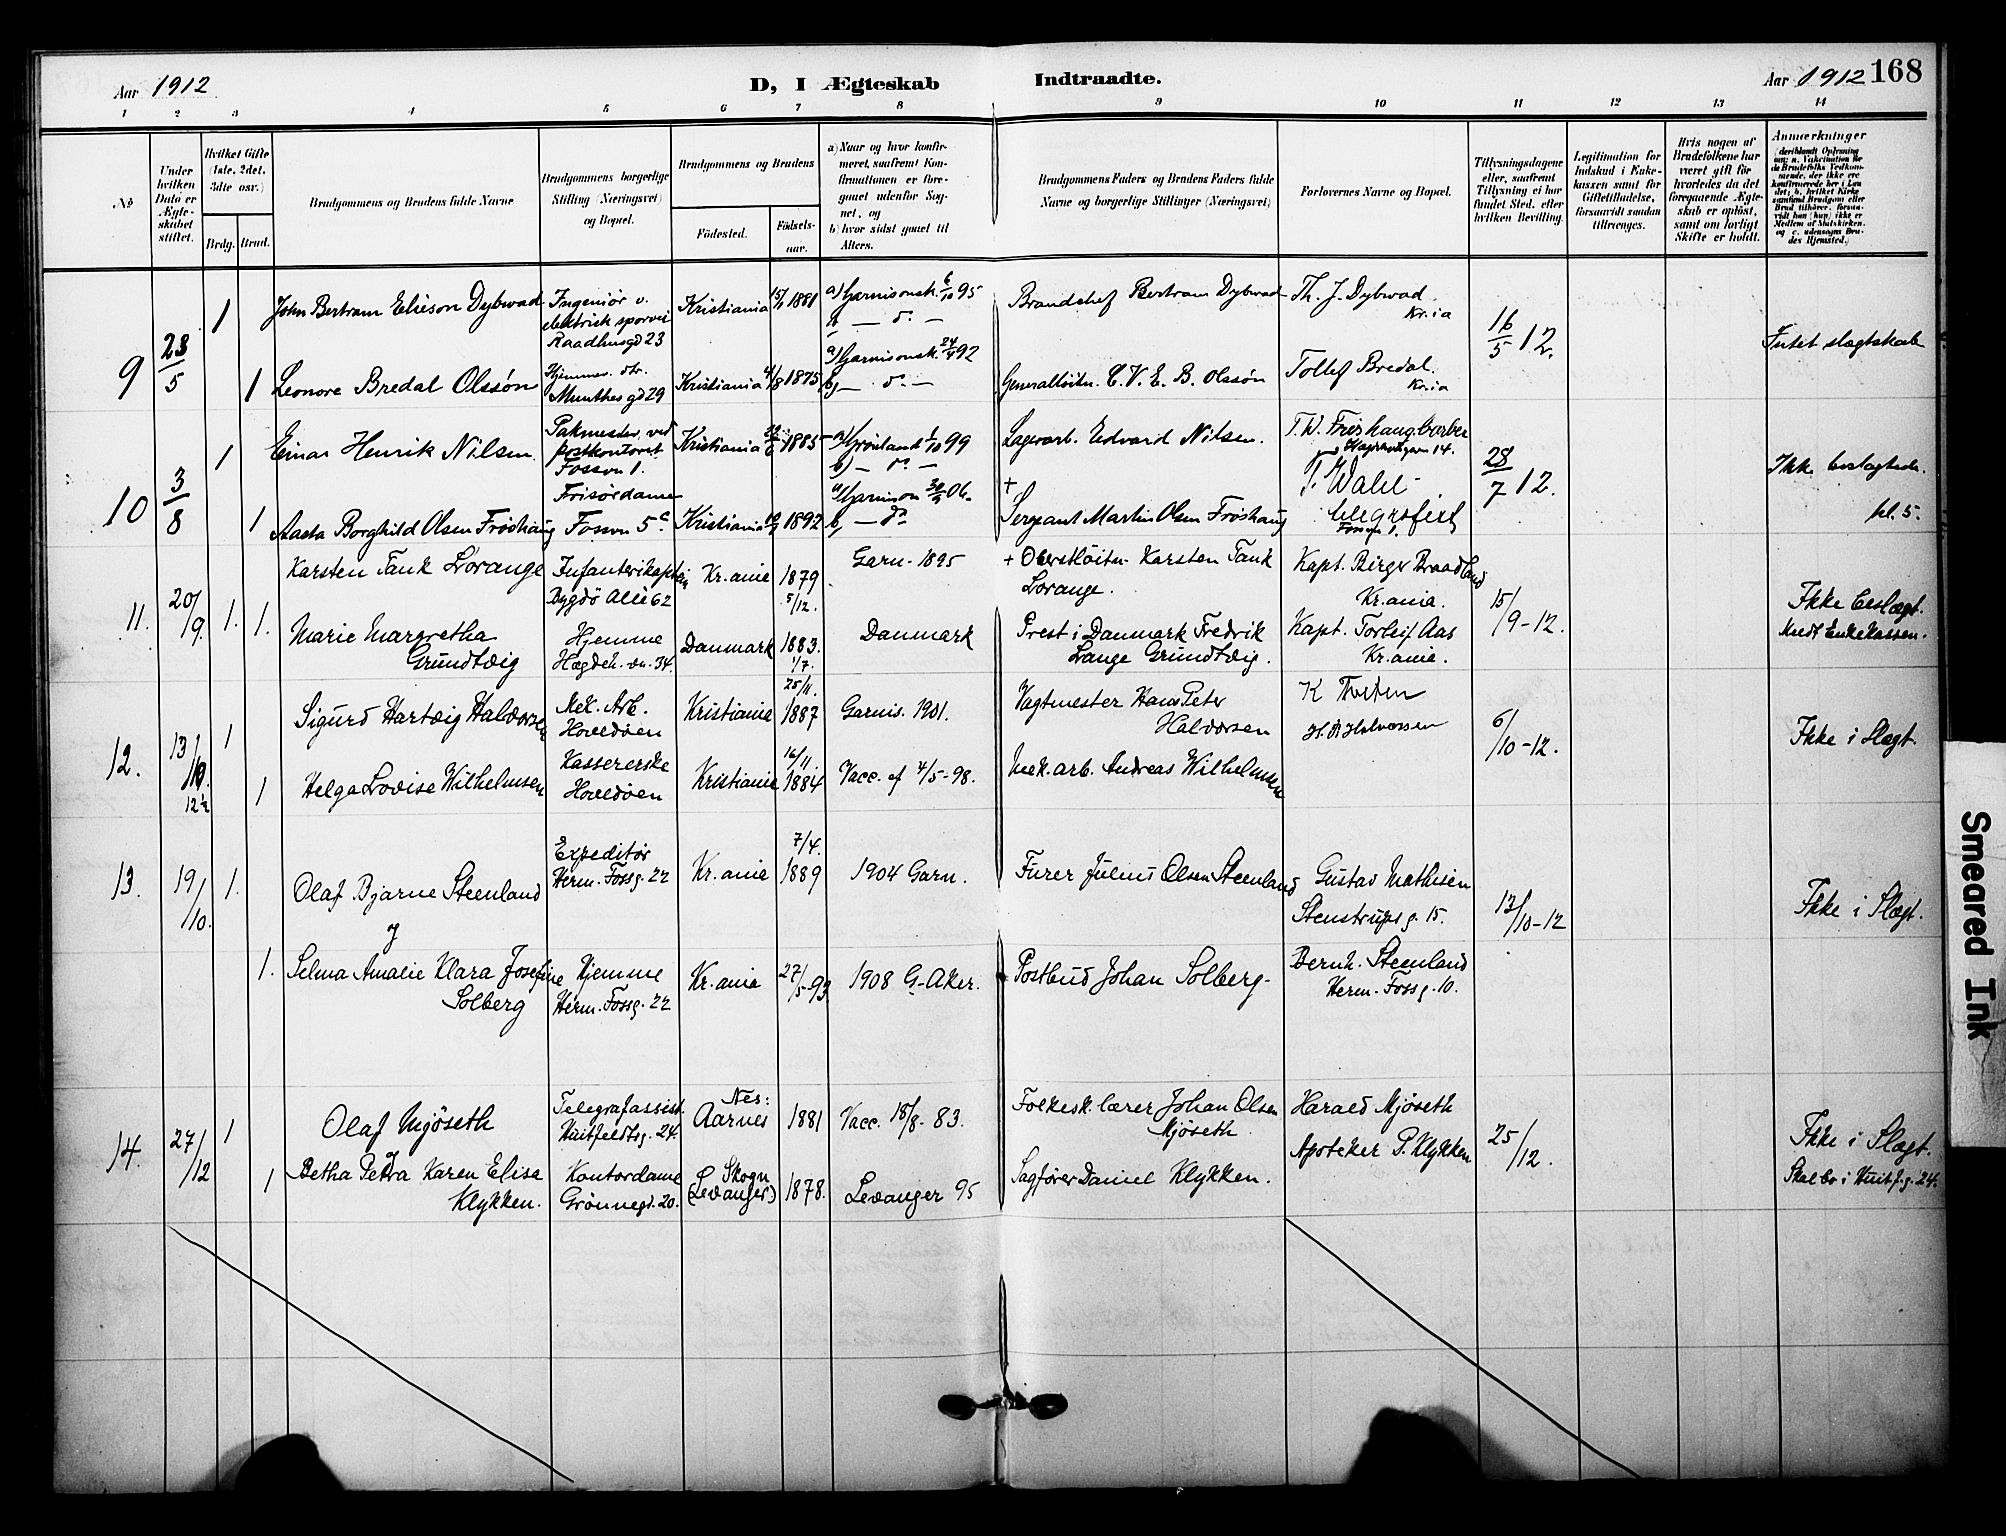 Aar 1912
D, I Ægteskab Indtraadte.
Aar 1912 168
1 2 3 4 5 6 7 8 9 10 11 12 13 14
No
Under hvilken Dato er Ægteskabet stiftet.
Hvilket Gifte (1ste, 2det, 3dte osv.)
Brdg. Brud.
Brudgommens og Brudens fulde Navne
Brudgommens borgerlige Stilling (Næringsvei) og Bopæl.
Brudgommens og Brudens
Fødested.
Fødselsaar.
a) Naar og hvor konfirmeret, saafremt Konfirmationen er foregaaet udenfor Sognet, og
b) hvor sidst gaaet til Alters.
Brudgommens Faders og Brudens Faders fulde Navne og borgerlige Stillinger (Næringsvei)
Forlovernes Navne og Bopæl.
Tillysningsdagene eller, saafremt Tillysning ei har fundet Sted, efter hvilken Bevilling.
Legitimation for Indskud i Enkekassen samt for Giftetilladelse, forsaavidt saadan tiltrænges.
Hvis nogen af Brudefolkene har været gift før hvorledes da det foregaaende Ægteskab er opløst, samt om lovligt Skifte er holdt.
Anmærkninger
9 23/5 1 John Bertram Elieson Dybwad
Ingeniør v. elektrisk sporvei Raadhusgd 23
Kristiania 15/1 1881
a) Garnisonsk. 6/10 95
b — d° —
Brandchef Bertram Dybwad
Th. J. Dybwad. Kr.ia
16/5 12.
Intet slægtskab
1 Leonore Bredal Olssøn
Hjemmev. dtr. Munthes gd 29
Kristiania 4/8 1875
a) Garnisonsk. 24/4 92
b — d° —
Generalløitn. C. V. E. B. Olssøn
Tollef Bredal. Kr.ia
10 3/8 1 Einar Henrik Nilsen
Pakmester ved postkontoret Fossvn 1.
Kristiania 1885
a) Grønland 1/10 99
b) — d° —
Lagerarb. Edvard Nilsen.
T. W. Frøshaug, barber
28/7 12.
Ikke beslægtede.
kl. 5.
1 Aasta Borghild Olsen Frøshaug
Frisørdame Fossvn 5c
Kristiania 1892
a) Garnison 30/9 06.
b, — d°
+ Sergeant Martin Olsen Frøshaug
T. Wahl - telegrafist Fossvn 1.
11. 20/9. 1. 1. Karsten Tank Lorange
Infanterikaptein Bygdö Allé 62
Kr.ania 1879 5/12.
Garn. 1895
+ Oberstløitn. Karsten Tank Lorange.
Kapt. Birger Braadland Kr.ania.
15/9 - 12.
Ikke beslægt.
Medt Enkekassen.
Marie Margretha Grundtvig
Hjemme Hægdeh. vn. 34.
Danmark 1883. 1/7.
Danmark
Prest i Danmark Fredrik Lange Grundtvig.
Kapt. Torleif Aas Kr.ania.
12. 13/10. 12½ 1 Sigurd Hartvig Halvorsen
Mek. Arb. Hovedøen
Kristiania 25/11. 1887
Garnis. 1901.
Vagtmester Hans Peter Halvorsen
H. P. Halvorsen
6/10 - 12.
Ikke i Slægt.
1 Helga Lovise Wilhelmsen
Kassererske Hovedøen
Kristiania 16/11. 1884
Vacc. af 4/5 - 98.
Mek. arb. Andreas Wilhelmsen
13. 19/10. 1. Olaf Bjarne Steenland
og
Expeditør Herm. Fossg. 22
Kr.ania 7/4. 1889
1904 Garn.
Furer Julius Olsen Steenland
Gustav Mathisen Stenstrups g. 15.
13/10 - 12
Ikke i Slægt.
1. Selma Amalie Klara Josefine Solberg
Hjemme Herm. Fossg. 22
Kr.ania 27/5 - 93
1908 G. Aker.
Postbud Johan Solberg.
Bernh. Steenland Herm. Foss g. 10.
14. 27/12 1 Olaf Mjøseth
Telegrafassist. Huitfeldtsg. 24.
Nes: Aarnes 1881
Vacc. 18/8 - 83.
Folkesk.lærer Johan Olsen Mjøseth
Harald Mjøseth
25/12.
Ikke i Slægt.
Skal bo i Huitf. g. 24.
1 Betha Petra Karen Elisa Klykken.
Kontordame Grønnegd. 20.
Skogn (Levanger) 1878.
Levanger 95
Sagfører Daniel Klykken.
Apoteker P. Klykken
Smeared Ink